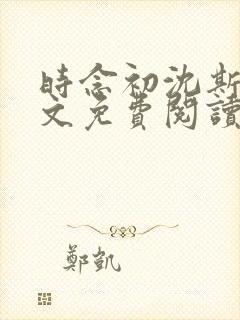 時念初沈斯
文免費閱讀
鄭凱